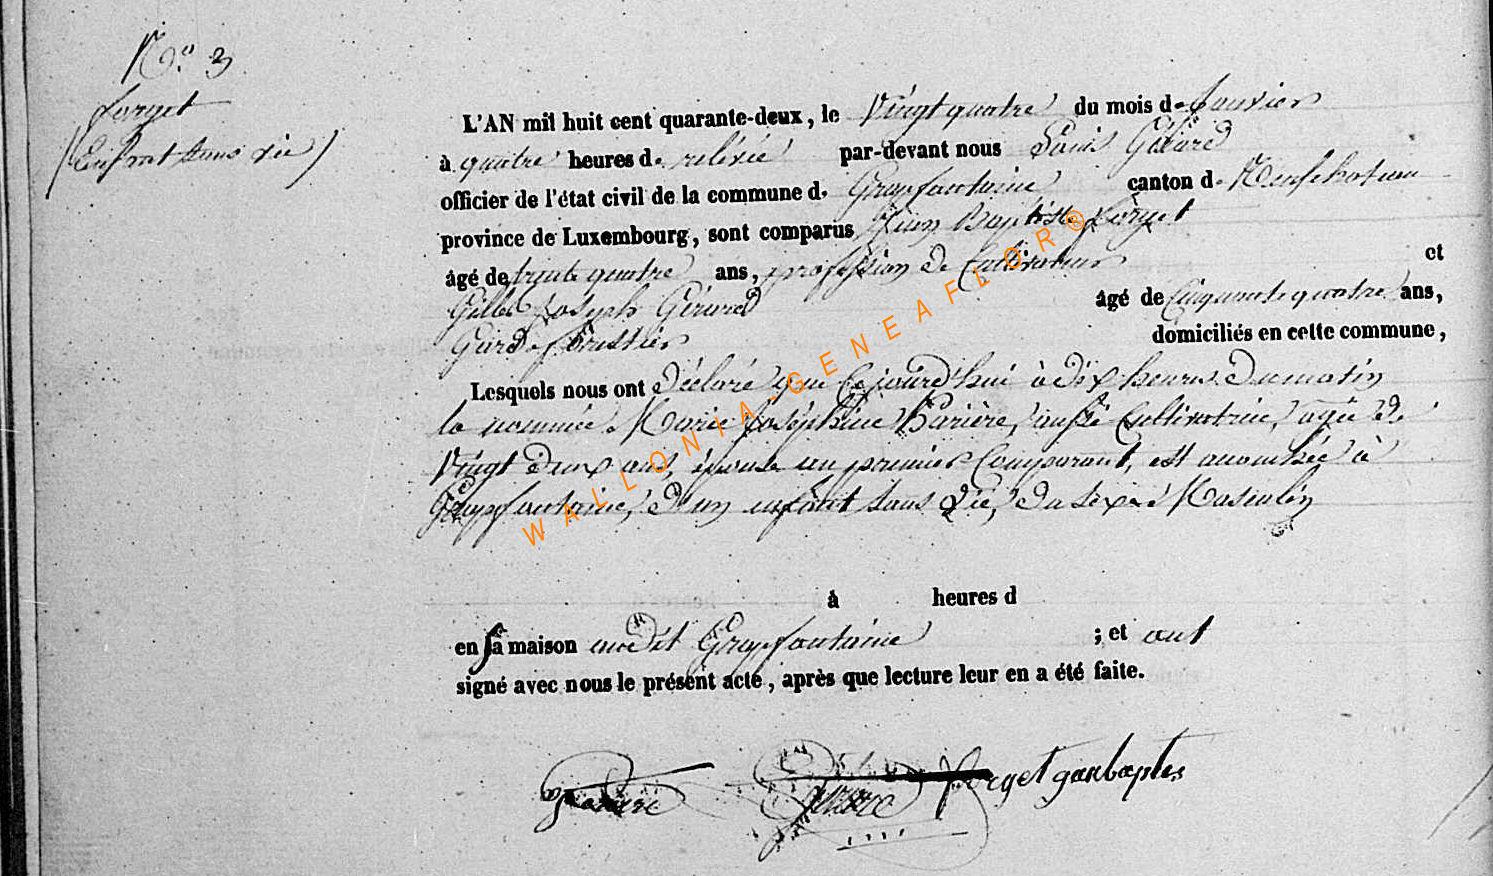 N.º 3
forget
(Enfant sans vie)
L'AN mil huit cent quarante-deux, le Vingt quatre du mois de Janvier
à quatre heures de relévée par-devant nous Louis Gérard
officier de l'état civil de la commune d. Grapfontaine canton de Neufchateau
province de Luxembourg, sont comparus Jean Baptiste forget
âgé de trente quatre ans, profession de Cultivateur et
Gilles Joseph Gérard âgé de Cinquante quatre ans,
Garde forestier domiciliés en cette commune,
Lesquels nous ont déclaré que Cejourd'hui à dix heures du matin
la nommée Marie Joséphine Barière, aussi Cultivatrice, agée de
Vingt deux ans, épouse au premier Comparant, est accouchée à
Grapfontaine, d'un enfant sans Vie, du sexe Masculin
à heures d
en sa maison audit Grapfontaine ; et ont
signé avec nous le présent acte, après que lecture leur en a été faite.
Gérard forget janbaptes
WALLONIA-GENEAFLOR®